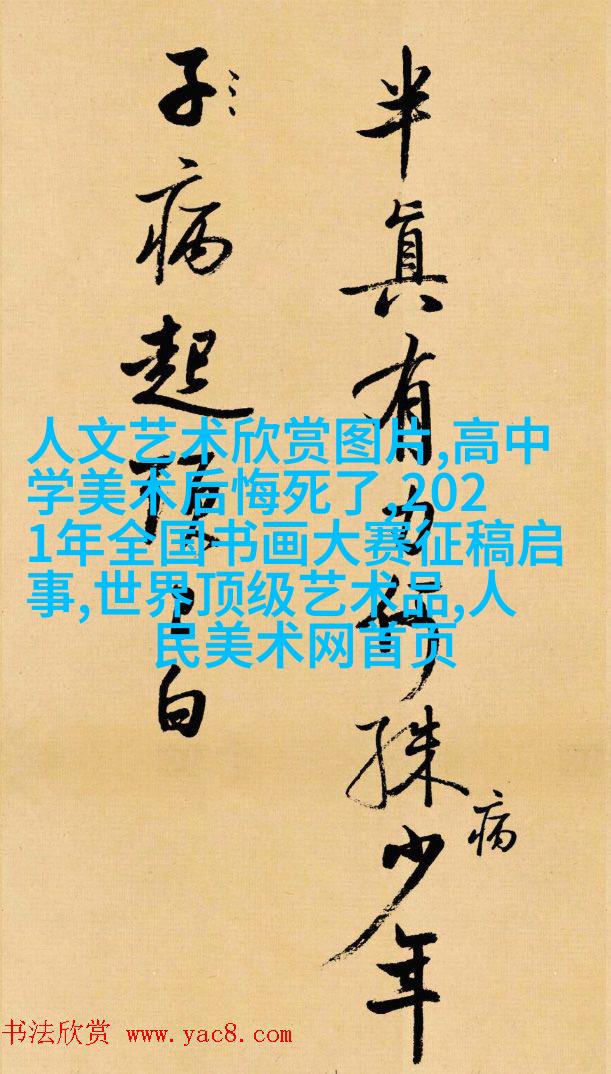 半真有殊少年
病
子病起白
人文艺术欣赏图片,高中
学美术后悔死了,202
1年全国书画大赛征稿启
事,世界顶级艺术品,人
民美术网首页
书法欣赏 www.yac8.com